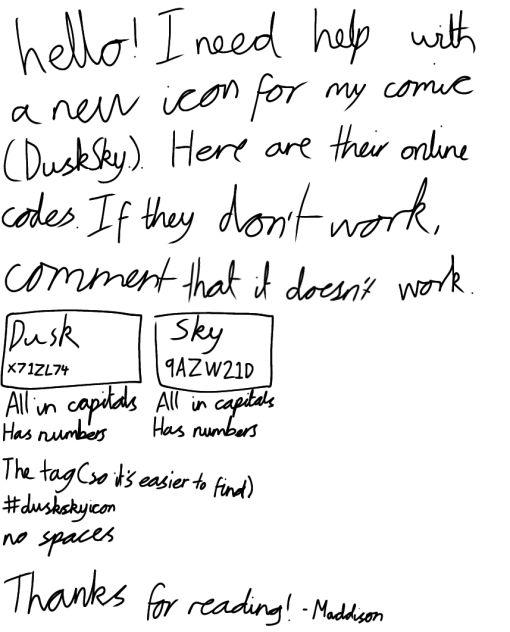 hello! I need help with
a new icon for my comic
(DuskSky). Here are their online
codes. If they don't work,
comment that it doesn't work.
Dusk
X71ZL74
All in capitals
Has numbers
Sky
9AZW21D
All in capitals
Has numbers
The tag (so it's easier to find)
#duskskyicon
no spaces
Thanks for reading! - Maddison